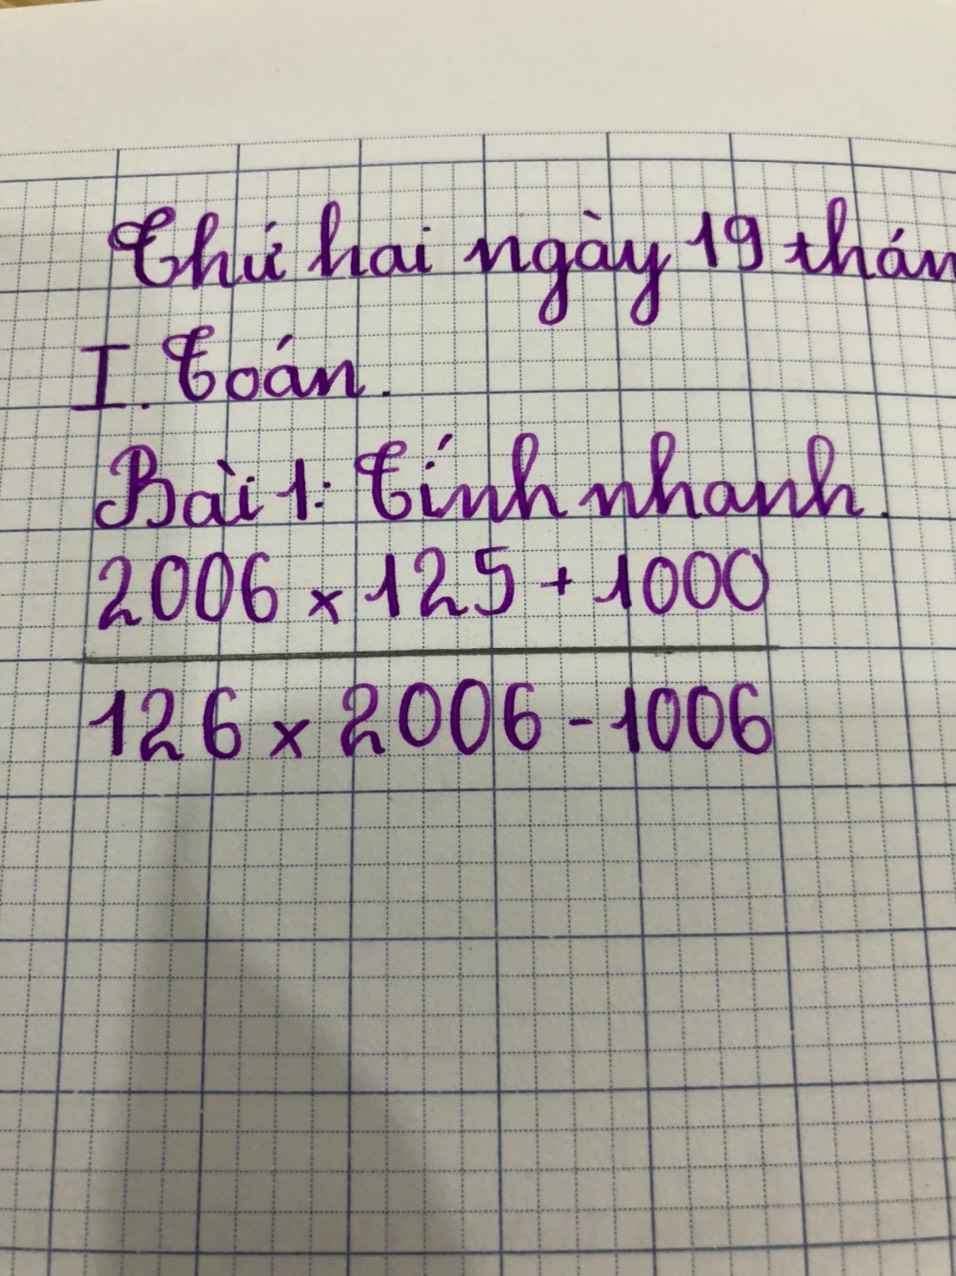 Thứ hai ngày 19 thán
I. Toán.
Bài 1: Tính nhanh.
2006 x 125 + 1000
126 x 2006 - 1006